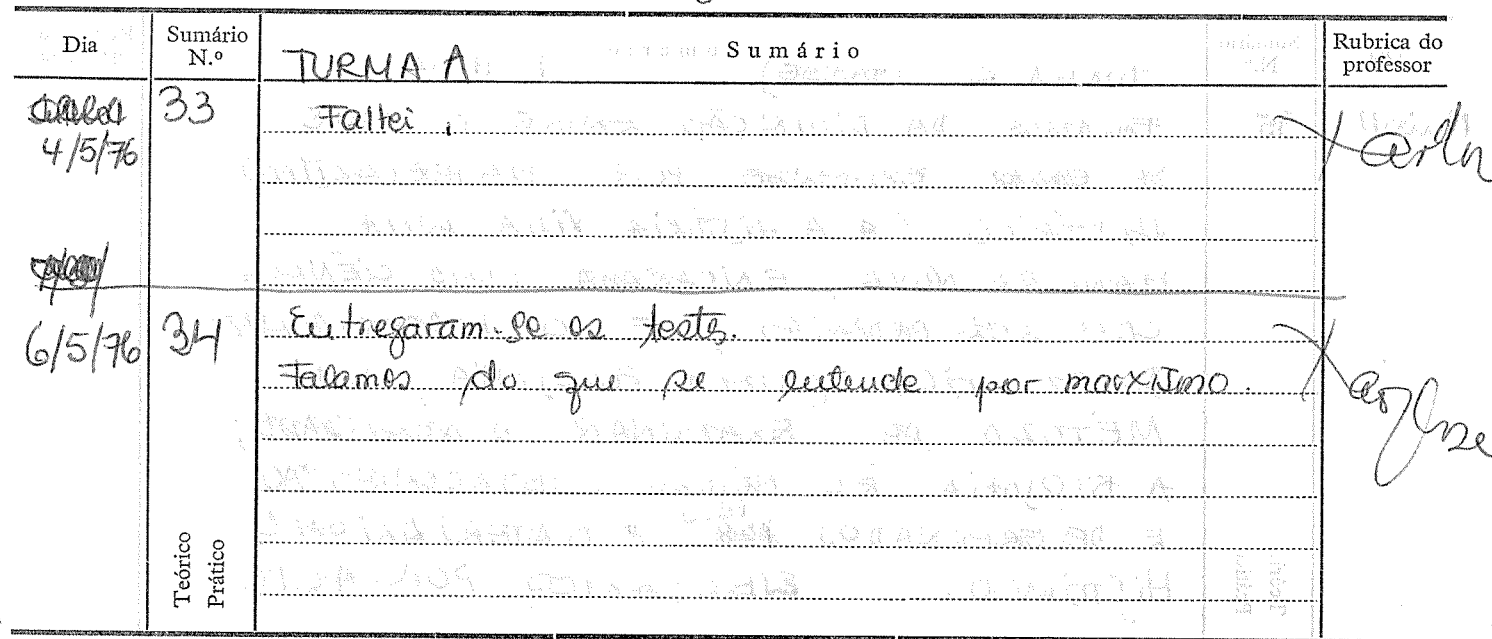 Dia
Sumário N.º
Sumário
Rubrica do professor
TURMA A
33
Faltei.
4/5/76
6/5/76
34
Entregaram-se os testes.
Falamos do que se entende por marxismo.
Teórico
Prático